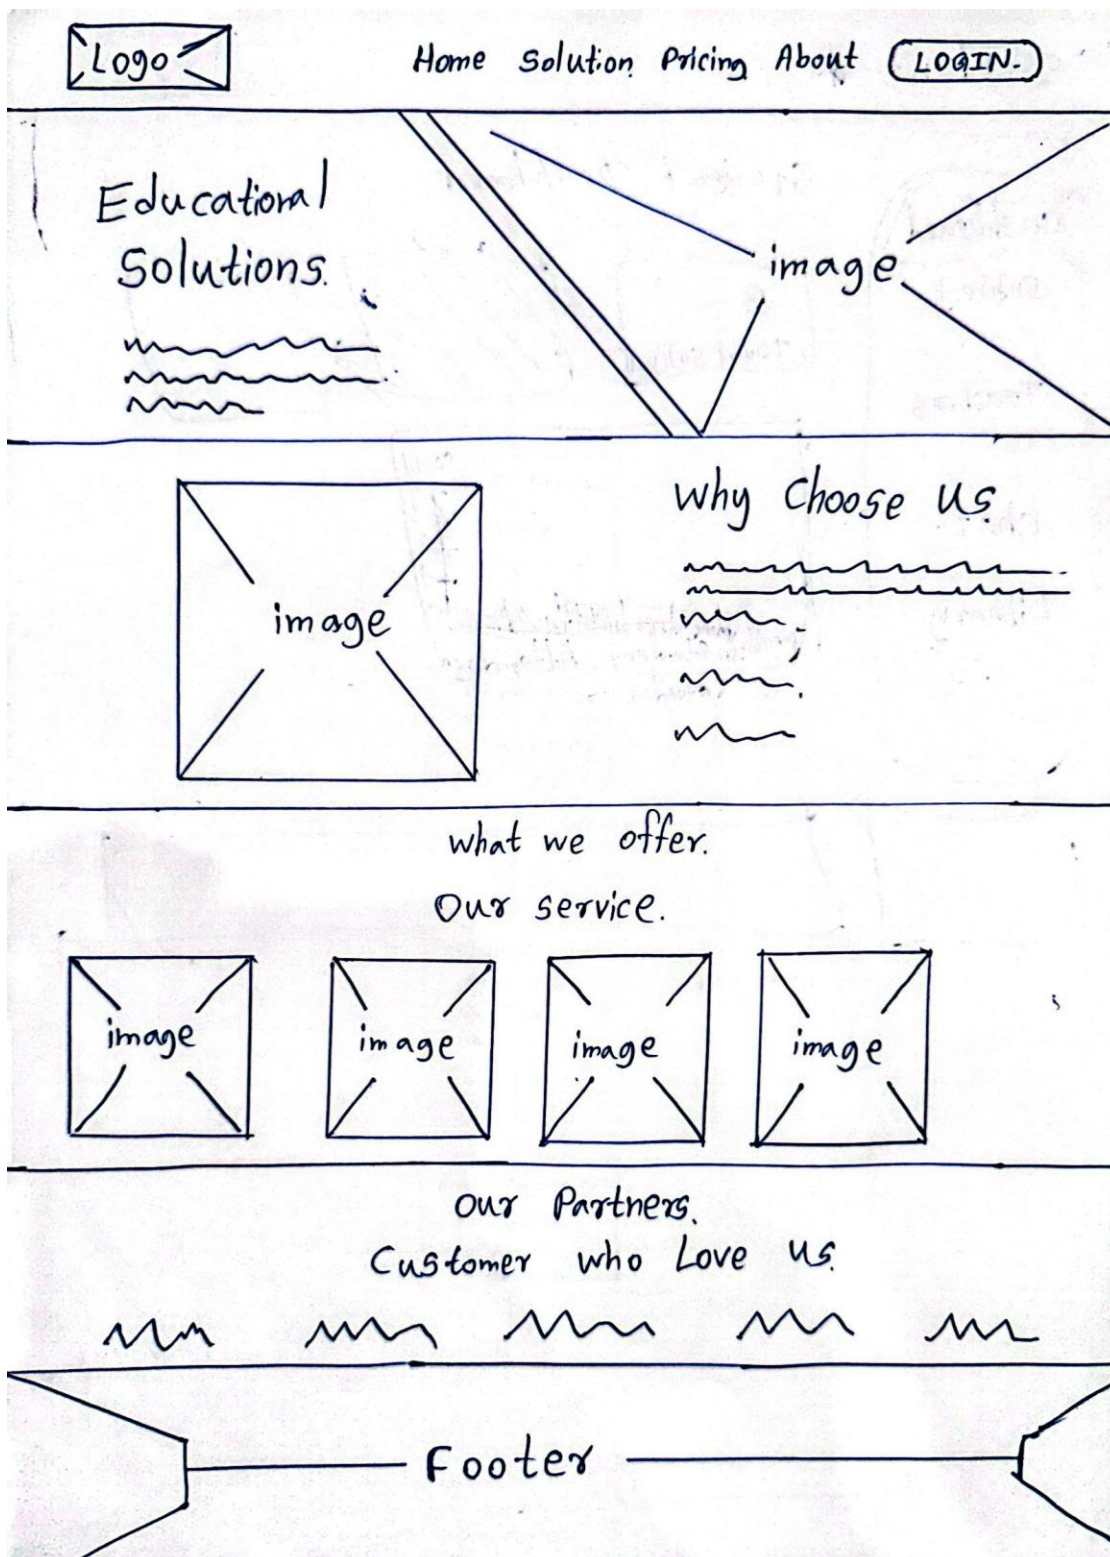 Logo Home Solution Pricing About LOGIN.
Educational
Solutions.
image
Why Choose Us.
image
what we offer.
Our service.
image image image image
Our Partners.
Customer who Love us.
Footer